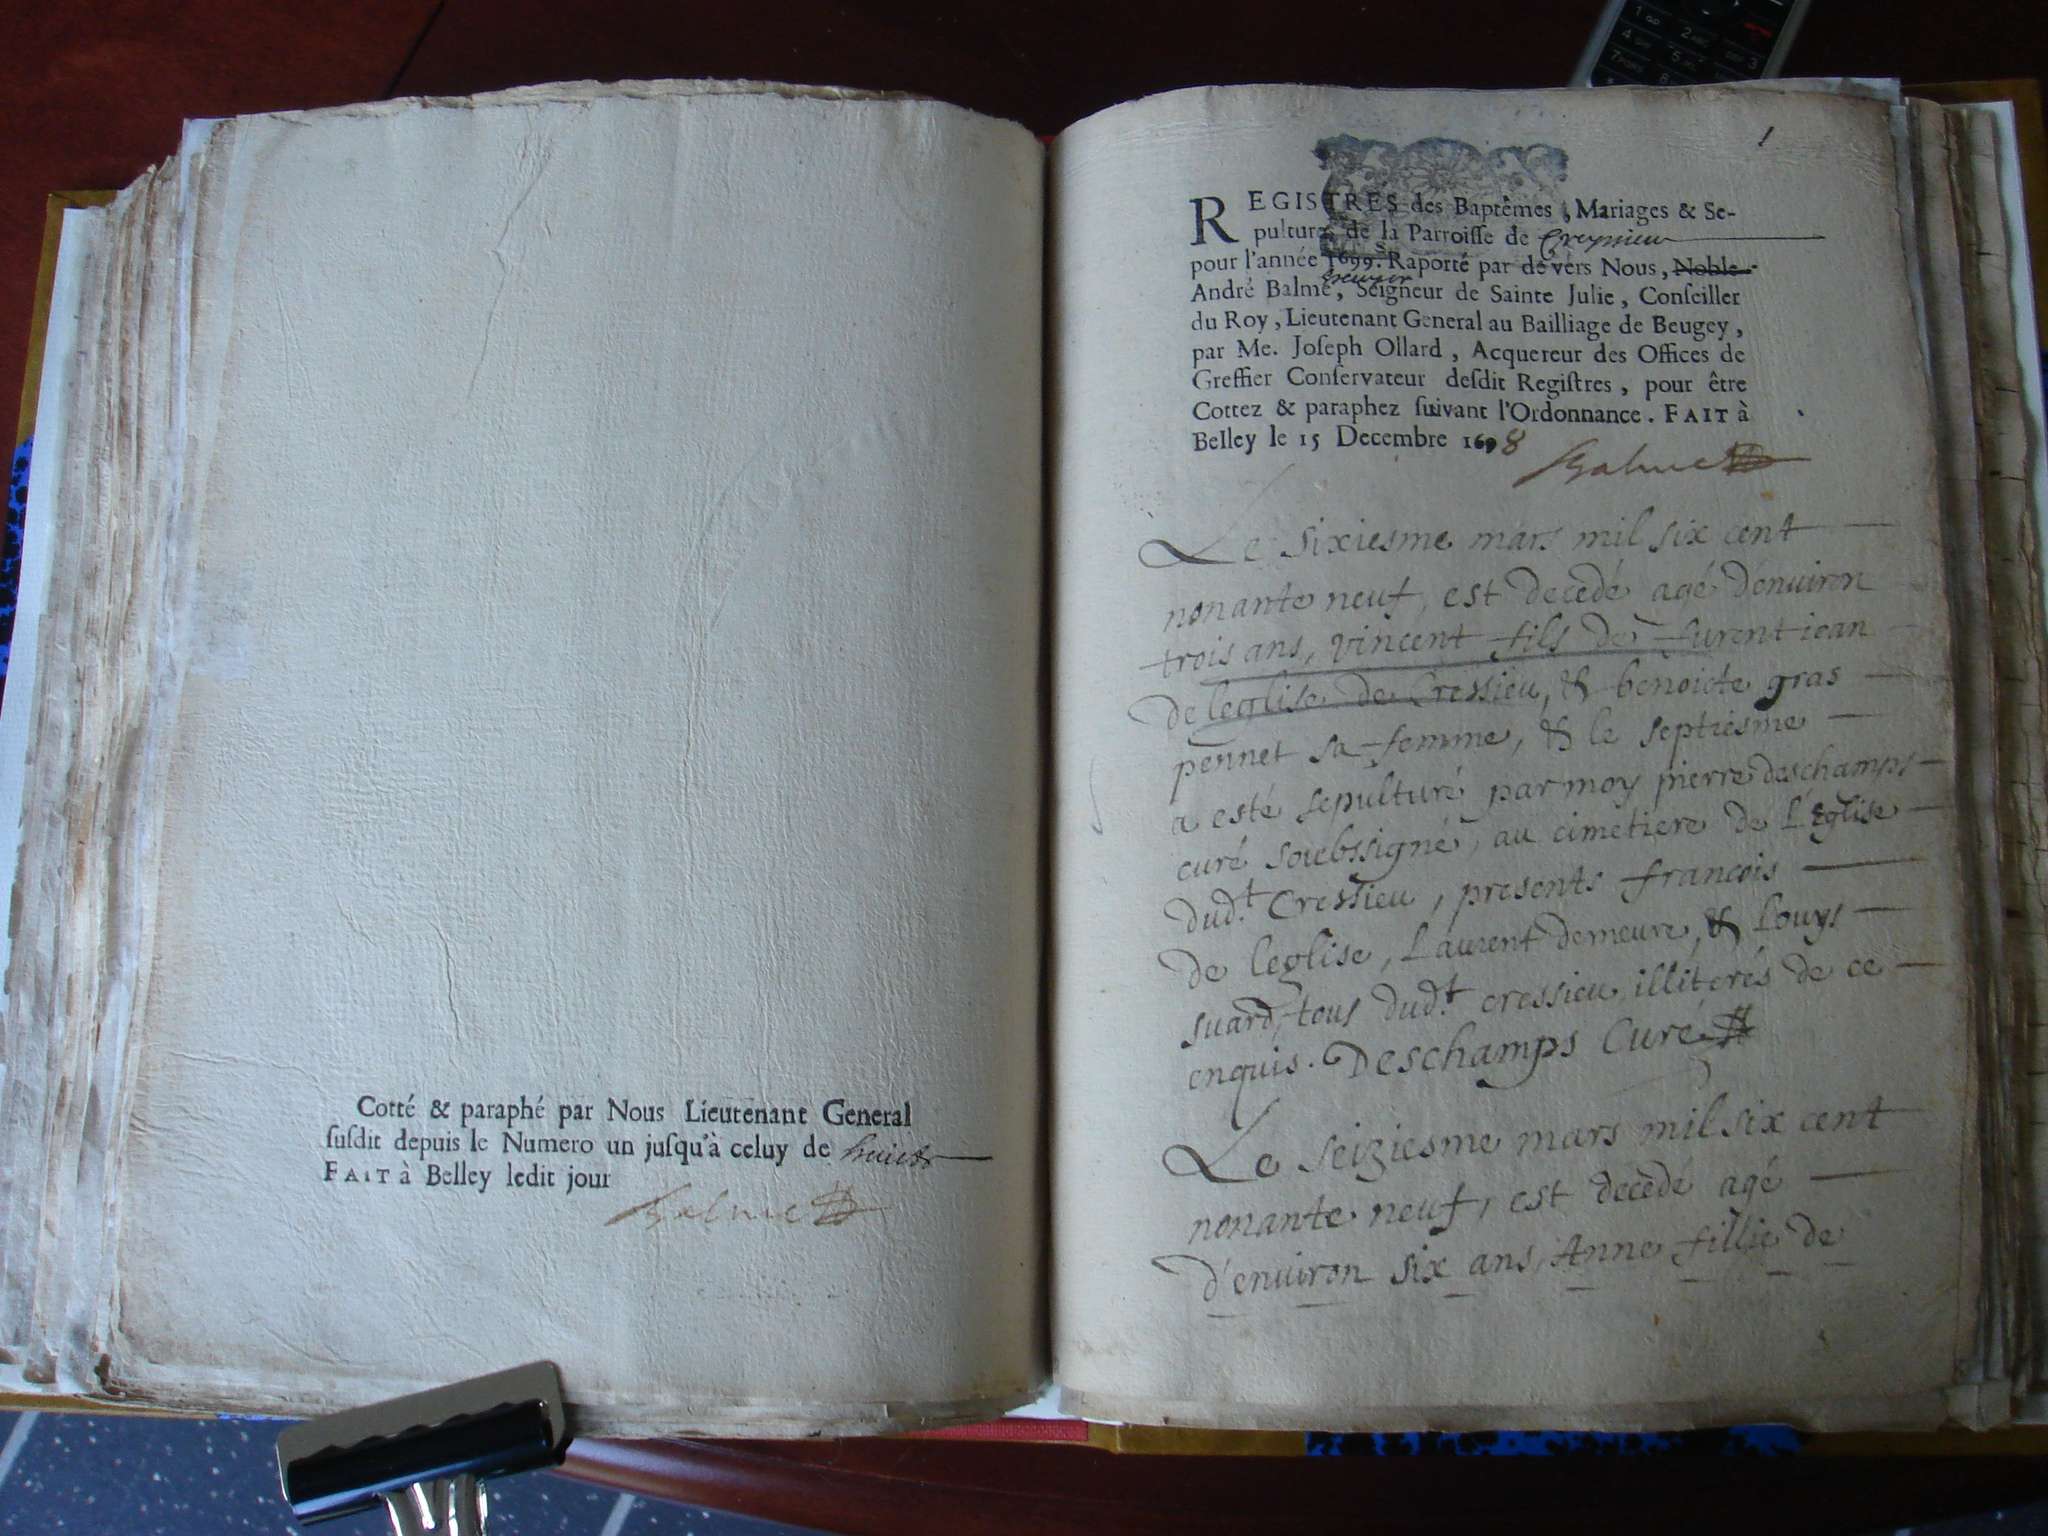 Cotté & paraphé par Nous Lieutenant General
ſuſdit depuis le Numero un juſqu'à celuy de huict
FAIT à Belley ledit jour
Balme
1
REGISTRES des Baptêmes, Mariages & Se-
pultures de la Parroiſſe de Creyſieu
pour l'année 1699. Raporté par devers Nous, Noble
André Balme, Seigneur de Sainte Julie, Conſeiller
du Roy, Lieutenant General au Bailliage de Beugey,
par Me. Joſeph Ollard, Acquereur des Offices de
Greffier Conſervateur deſdit Regiſtres, pour être
Cottez & paraphez ſuivant l'Ordonnance. FAIT à
Belley le 15 Decembre 1698
Balme
Le sixiesme mars mil six cent
nonante neuf, est decedé agé d'enuiron
trois ans, vincent fils de furent iean
de leglise de Cressieu, & benoicte gras
pennet sa femme, & le septiesme
a esté sepulturé par moy pierre deschamps
curé soubssigné, au cimetiere de L'Eglise
dud.t Cressieu, presents francois
de leglise, Laurent demeure, & Louys
suard, tous dud.t cressieu illiterés de ce
enquis. Deschamps Curé
Le seiziesme mars mil six cent
nonante neuf, est decedé agé
d'enuiron six ans, Anne fillie de